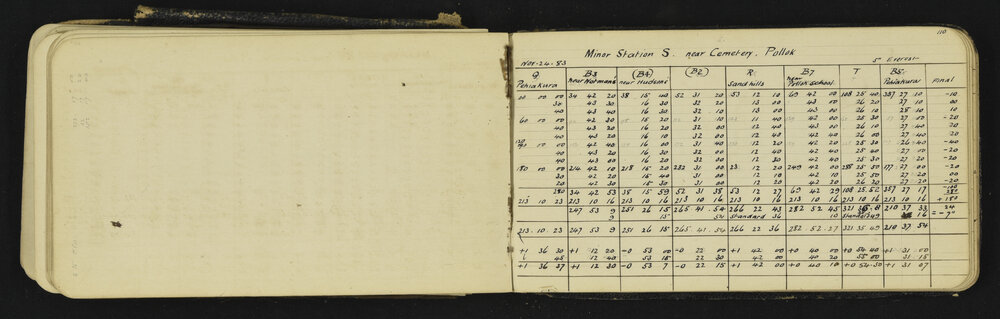 110
Minor Station S. near Cemetery. Pollok
Nov-24-83 5" Everest
Q B3 (B4) (B2) R B7 T B5 Final
Pehiakura near Hudsons Sandhills near Pollok School Pehiakura
00 00 00 34 42 20 38 15 40 52 31 20 53 12 10 69 42 00 108 25 40 357 27 10 -10
30 43 30 16 30 32 00 13 00 43 00 26 20 27 10 00
40 43 40 16 30 32 10 13 00 43 00 26 10 28 10 10
60 00 00 42 30 15 20 31 10 11 40 42 00 25 30 27 00 -20
40 43 20 16 20 32 00 12 40 43 00 26 10 27 40 20
40 43 20 16 10 32 00 12 40 42 40 26 00 27 40 20
40 43 00 16 20 32 00 12 30 42 40 25 30 27 20 -20
180 00 00 214 42 10 218 15 20 232 31 00 23. 12 20 249 42 00 288 25 50 177 27 00 -20
30 42 20 15 40 31 00 12 20 42 10 25 50 27 00 -20
20 42 30 15 30 31 00 12 20 42 20 26 20 27 20 -20
34 42 53 38 15 59 52 31 38 53 12 27 69 42 29 108 25 52 357 27 17
213 10 23 213 10 16 213 10 16 213 10 16 213 10 16 213 10 16 213 10 16 213 10 16 +180
247 53 9 251 26 15 265 41 54 266 22 43 282 52 45 321 210 37 33 24
9 15 54 Standard 36 Standard 49 16 = -7"
213.10.23 247 53 9 251 26 15 265 41 54 266 22 36 282 52 27 321 35 49 210 37 54
+1 36 30 +1 12 20 -0 53 00 -0 22 00 +1 42 00 +0 40 00 +0 54 40 +1 31 00
45 12 40 53 15 22 30 42 00 40 20 55 00 31 15
+1 36 37 +1 12 30 -0 53 7 -0 22 15 +1 42 00 +0 40 10 +0 54 50 +1 31 07